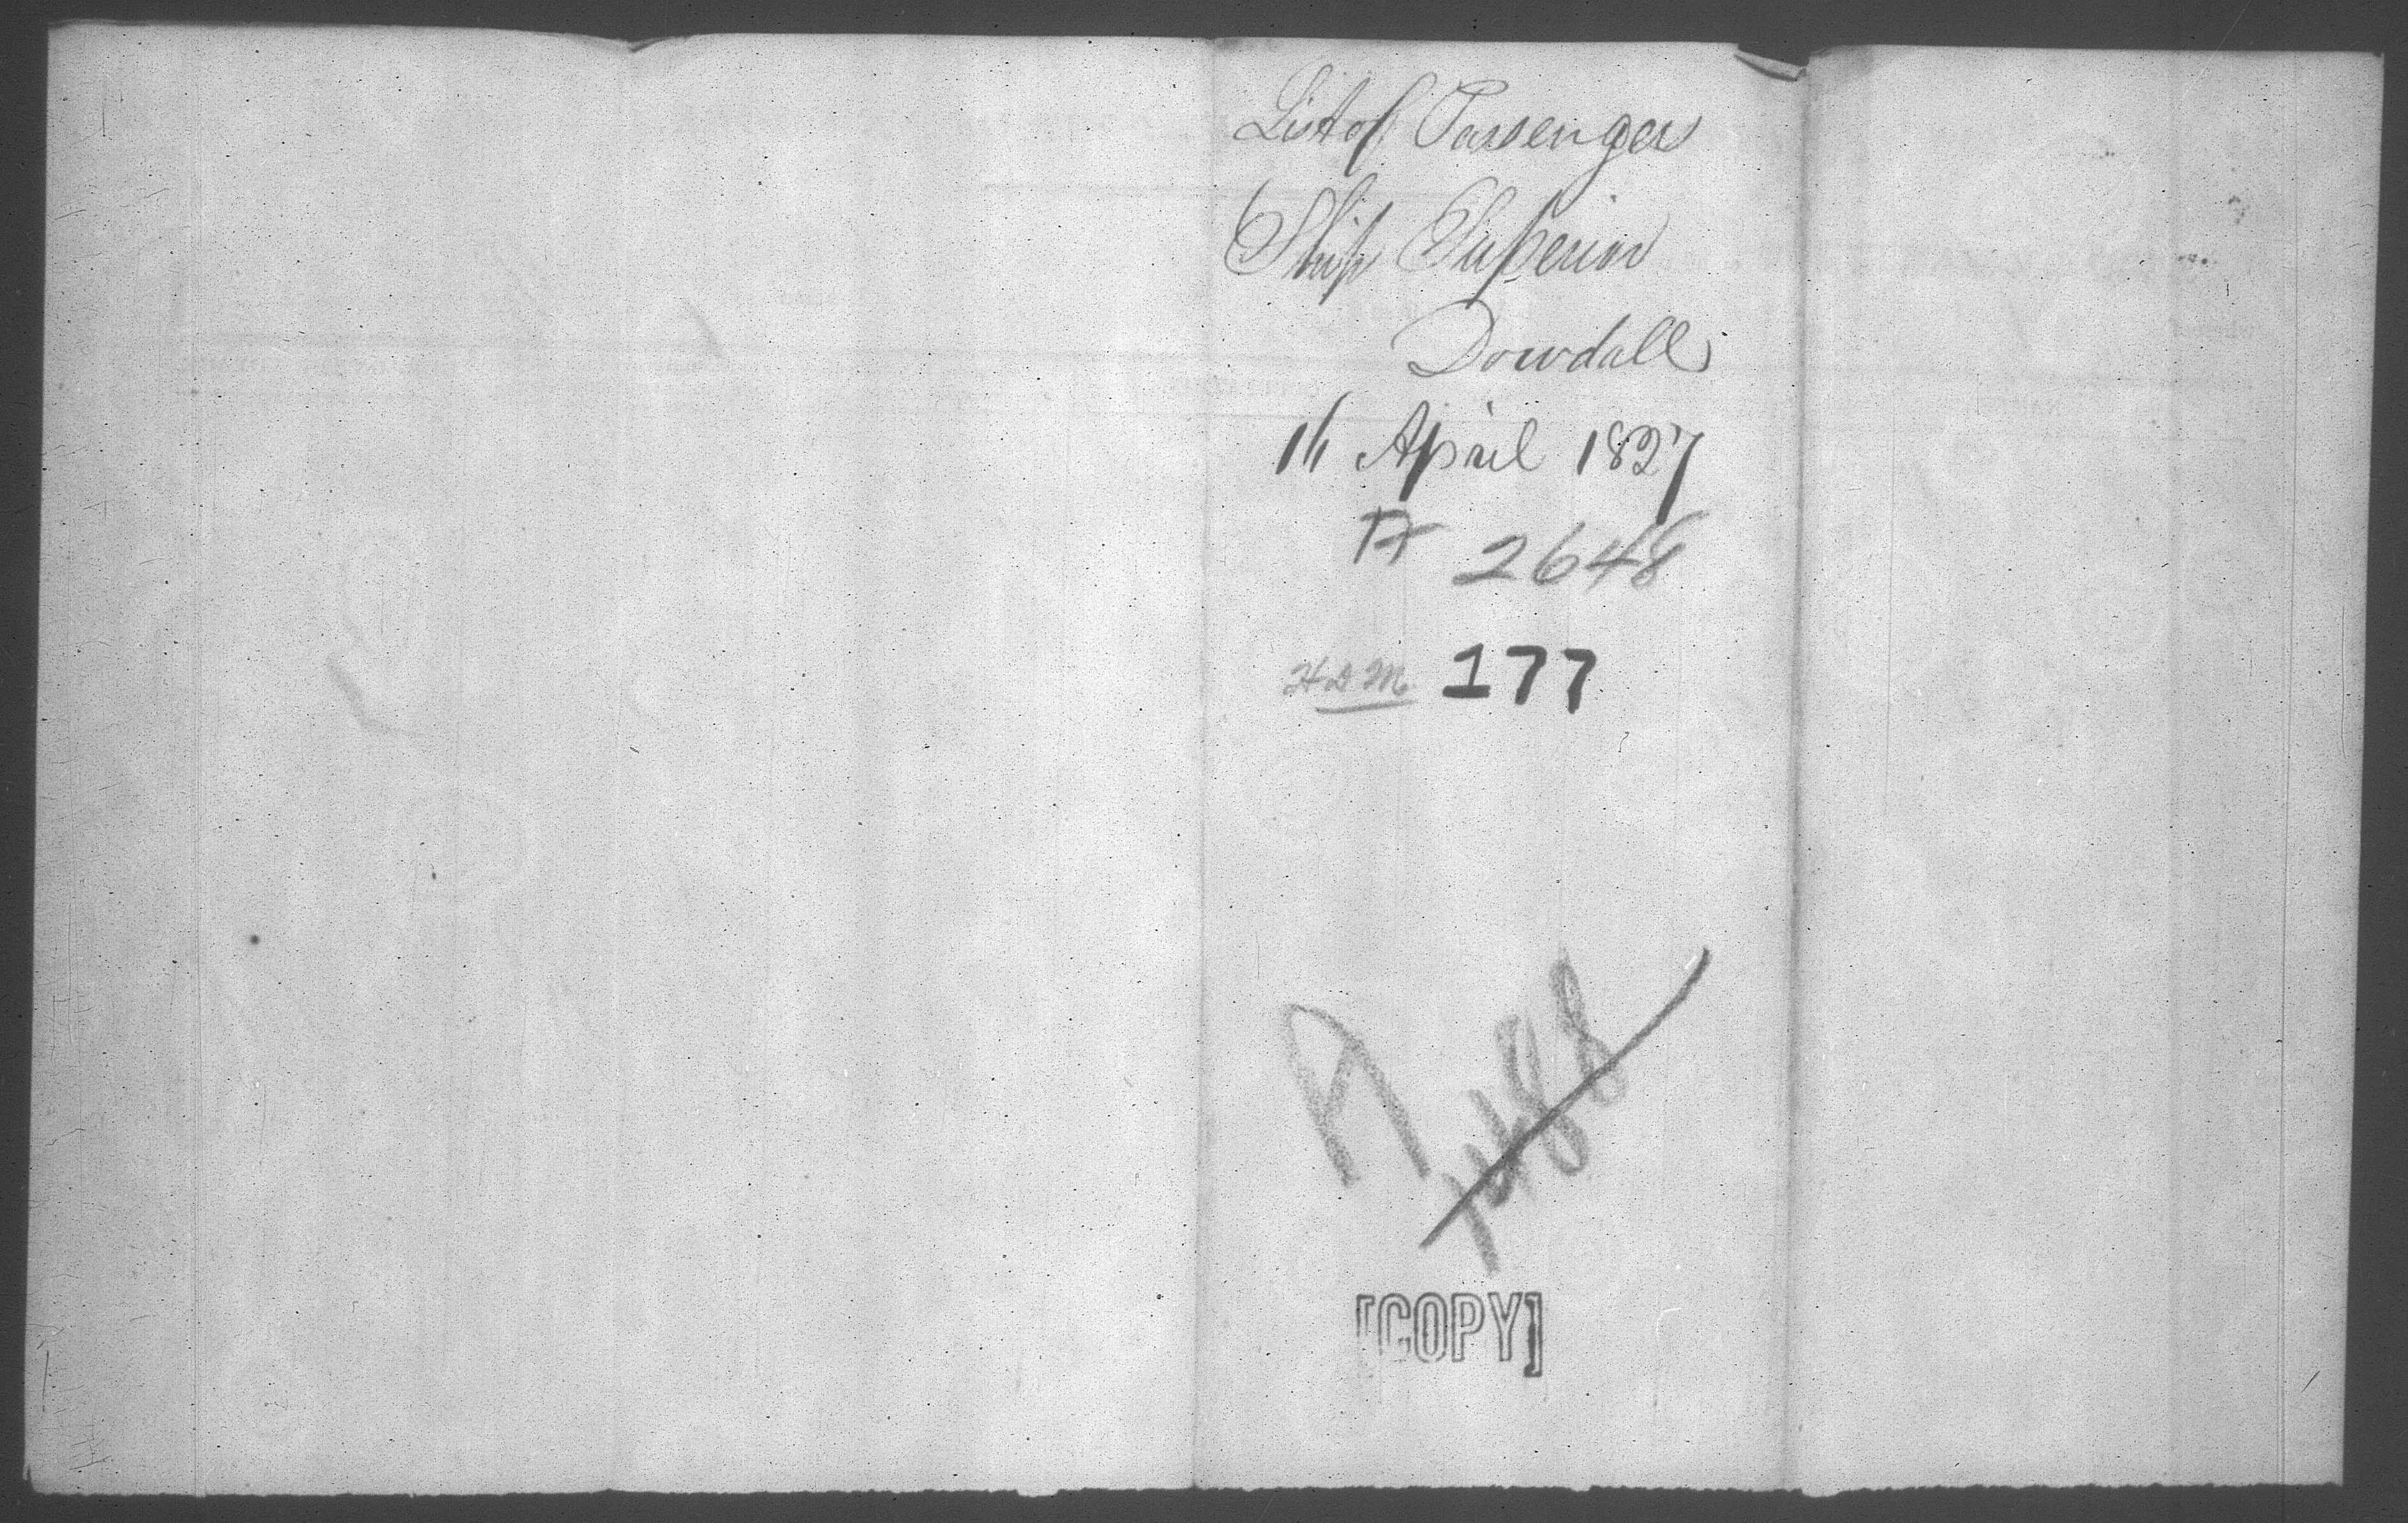 List of Passenger
Ship Superior
Dowdall
16 April 1827
2648
HDM 177
A
[COPY]